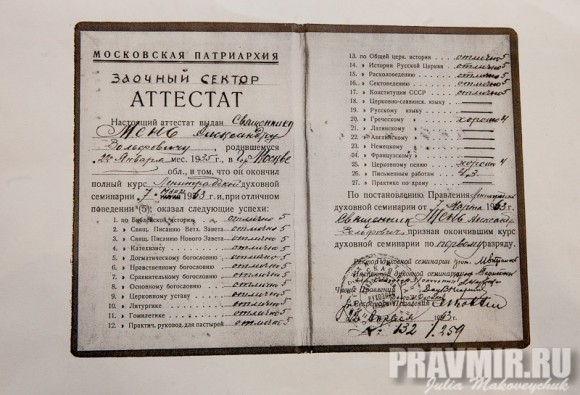 МОСКОВСКАЯ ПАТРИАРХИЯ
ЗАОЧНЫЙ СЕКТОР
АТТЕСТАТ
Настоящий аттестат выдан Священнику
Мень Александру
родившемуся
22 Января мес. 1935, в г. Москве
обл., в том, что он окончил
полный курс Ленинградской духовной
семинарии 7 1963 и, при отличном
поведении (5), оказал следующие успехи:
1. по Библейской истории отлично 5
2. » Свящ. Писанию Ветх. Завета отлично 5
3. » Свящ. Писанию Нового Завета отлично 5
4. » Катехизису отлично 5
5. » Догматическому богословию отлично 5
6. » Нравственному богословию отлично 5
7. » Сравнительному богословию отлично 5
8. » Основному богословию отлично 5
9. » Церковному уставу отлично 5
10. » Литургике отлично 5
11. » Гомилетике отлично 5
12. » Практич. руковод. для пастырей отлично 5
13. по Общей церк. истории отлично 5
14. » Истории Русской Церкви отлично 5
15. » Расколоведению отлично 5
16. » Сектоведению отлично 5
17. » Конституции СССР отлично 5
18. » Церковно-славянск. языку —
19. » Русскому языку —
20. » Греческому хорошо 4
21. » Латинскому
22. » Английскому
23. » Немецкому
24. » Французскому
25. » Церковному пению хорошо 4
26. » Письменным работам 4,3
27. » Практике по храму
По постановлению Правления
духовной семинарии от 7 1963 г.
Священник Мень Александр
признан окончившим курс
духовной семинарии по первому разряду.
Ректор духовной семинарии
Инспектор духовной семинарии
Члены Правления
Секретарь Правления
1963 г.
№ 132 1.259
PRAVMIR.RU
Julia Makoveychuk